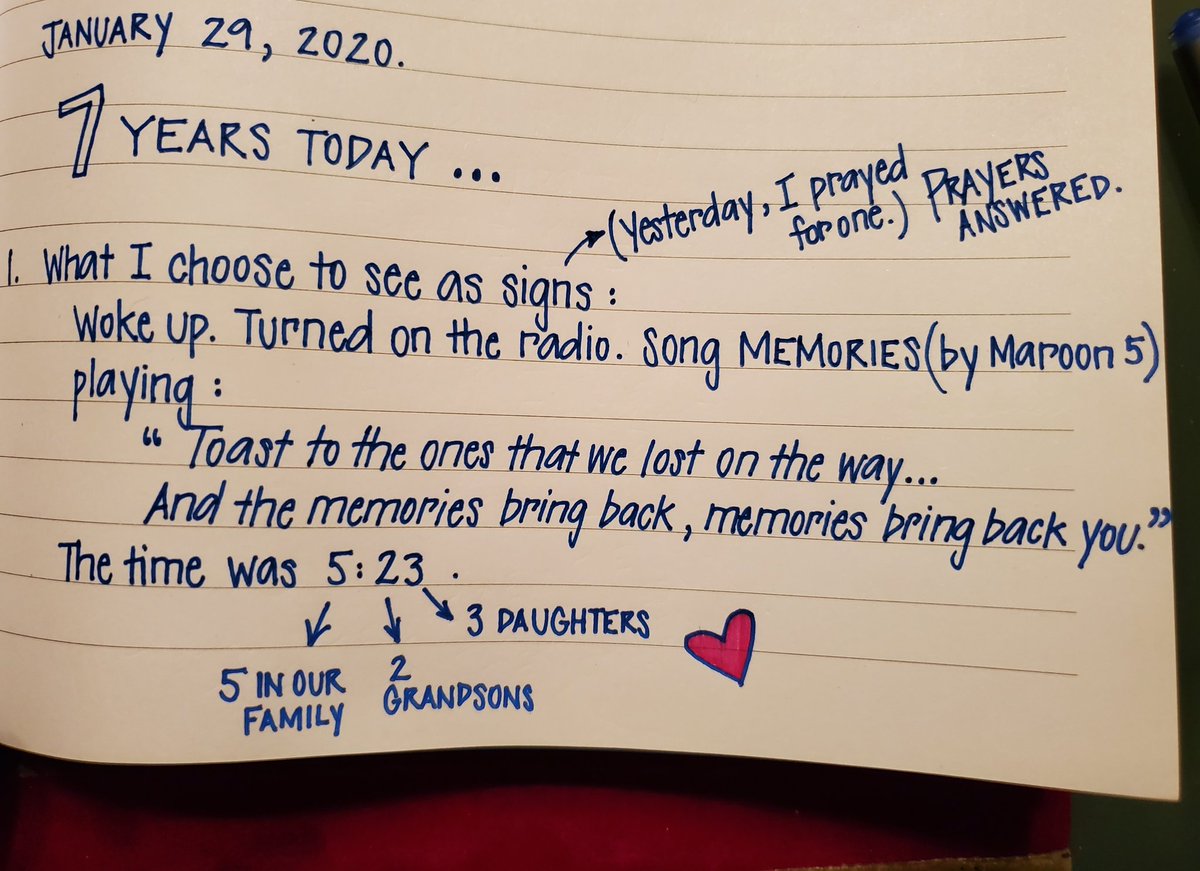 JANUARY 29, 2020.
7 YEARS TODAY ...
(Yesterday, I prayed
for one.) PRAYERS
ANSWERED.
1. What I choose to see as signs :
Woke up. Turned on the radio. Song MEMORIES (by Maroon 5)
playing :
“ Toast to the ones that we lost on the way...
And the memories bring back, memories bring back you.”
The time was 5:23 .
3 DAUGHTERS
5 IN OUR
FAMILY
2
GRANDSONS